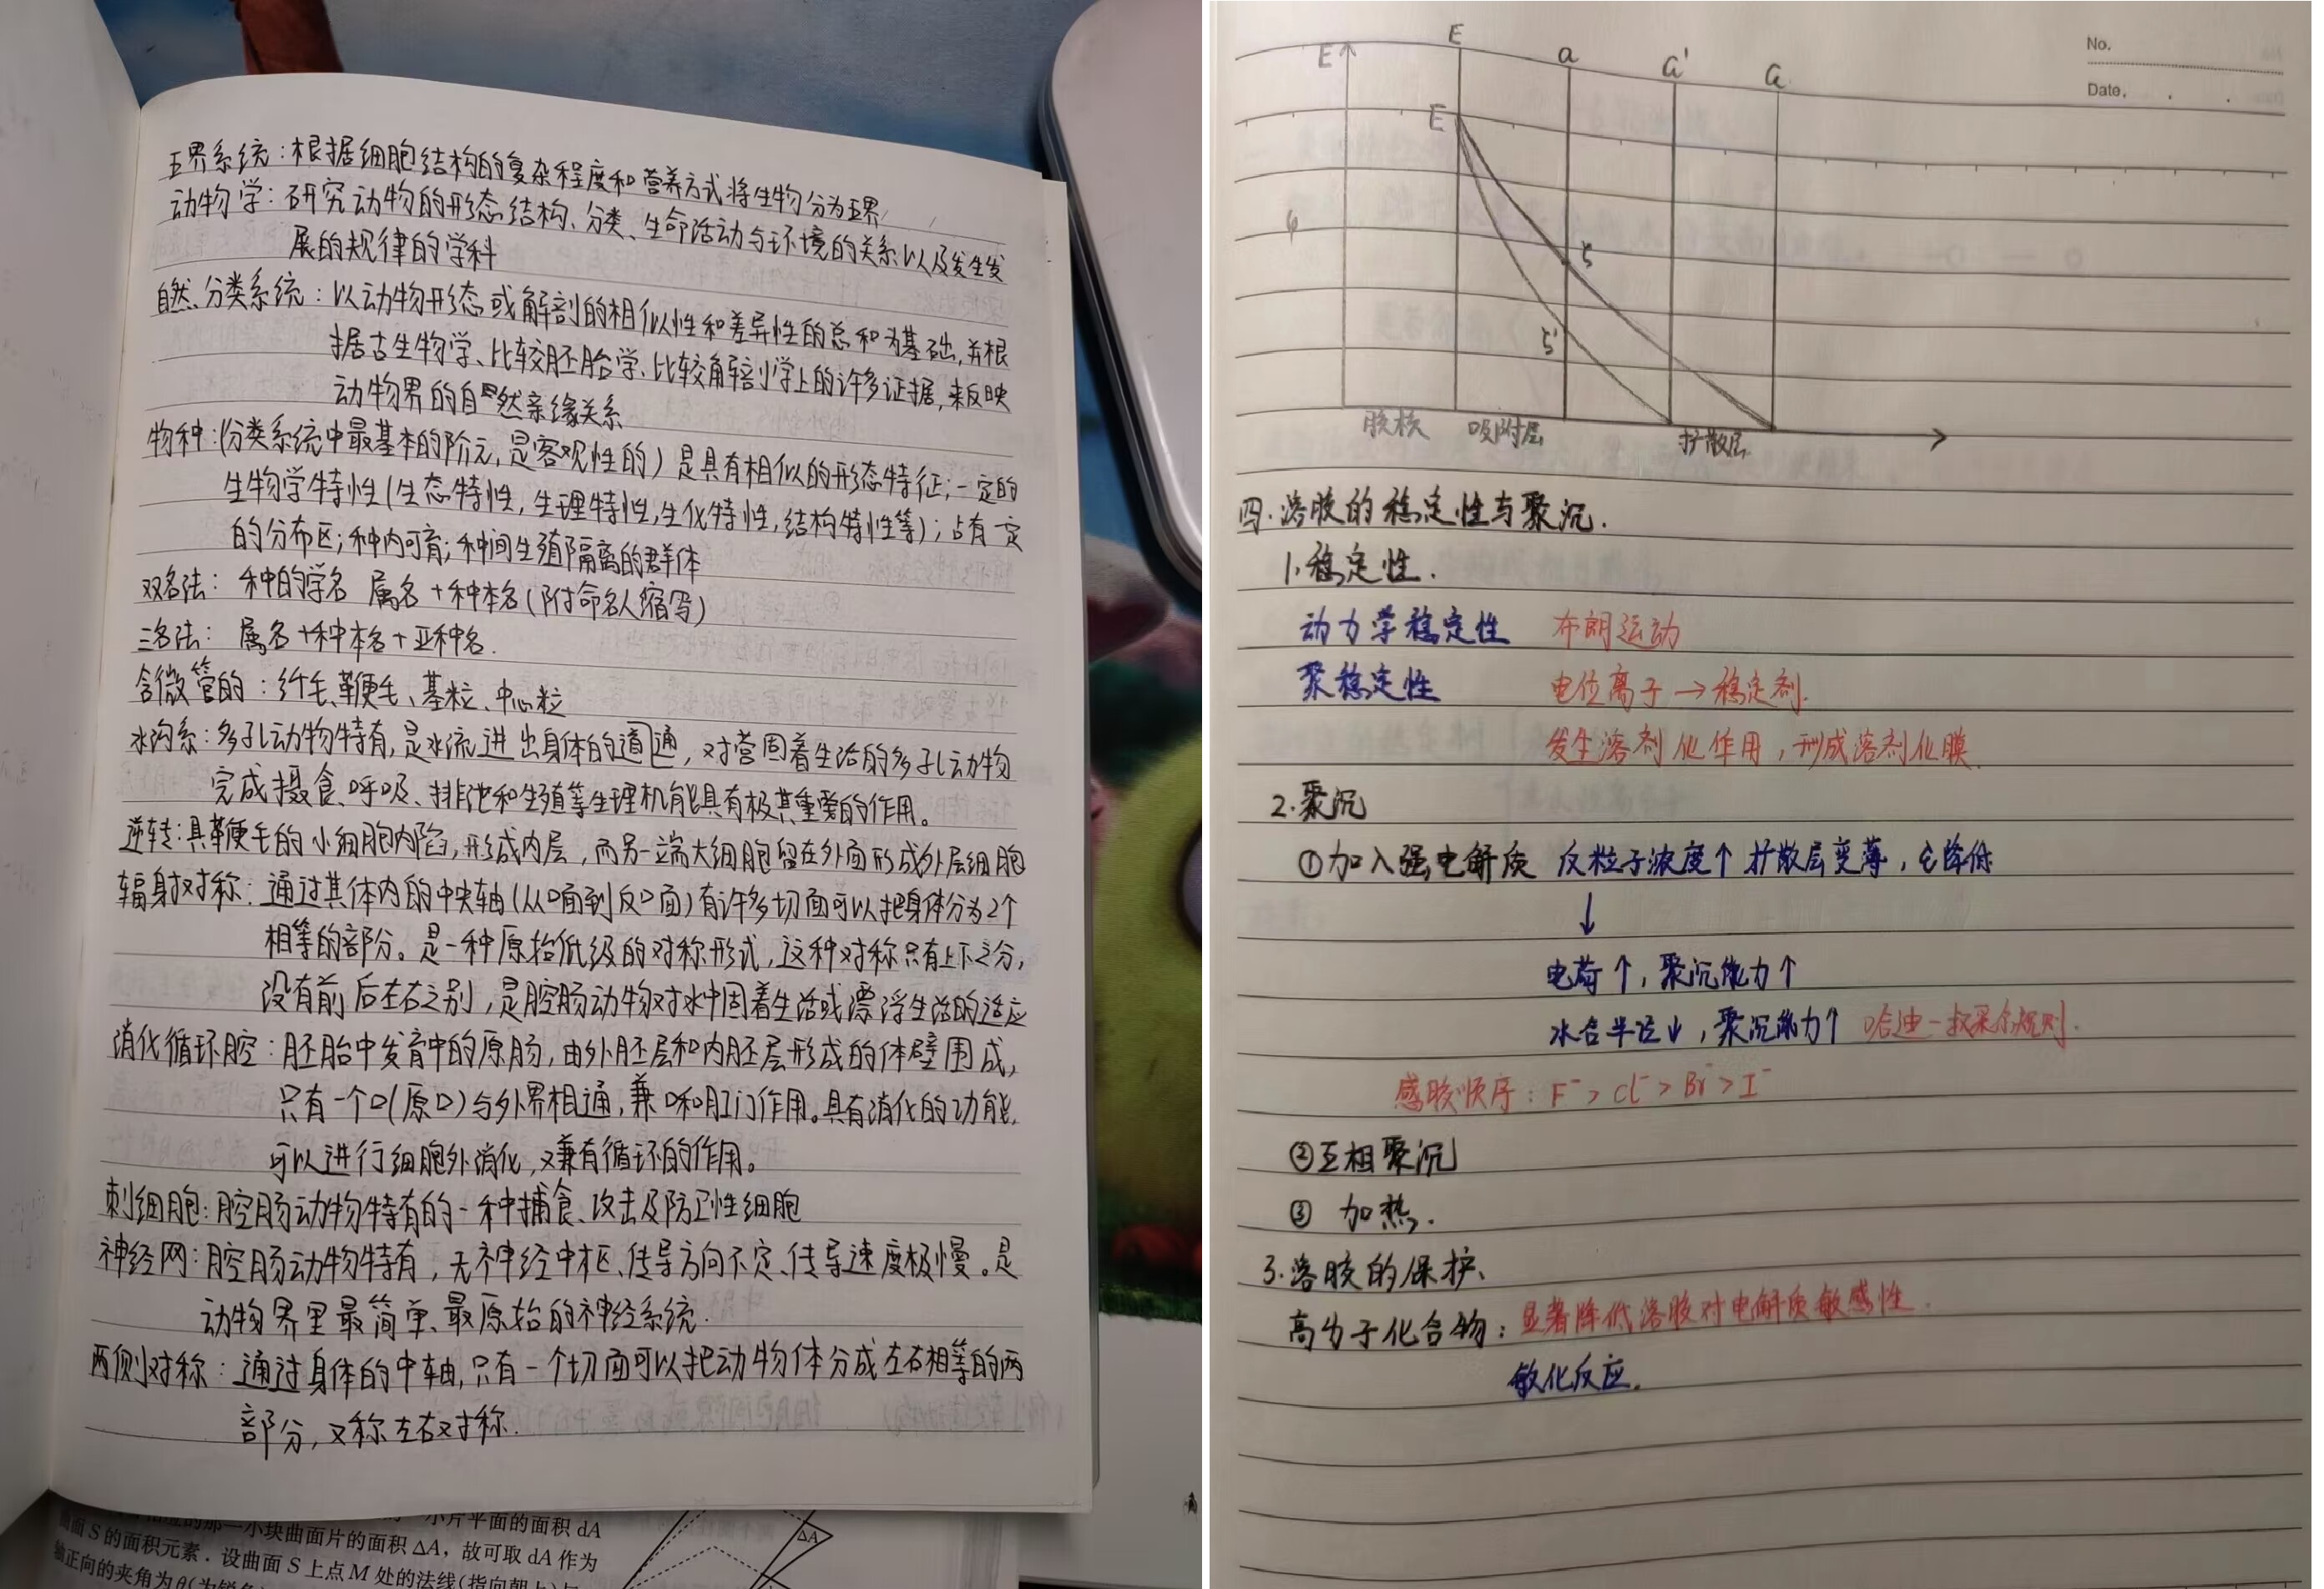 五界系统：根据细胞结构的复杂程度和营养方式将生物分为五界
动物学：研究动物的形态结构、分类、生命活动与环境的关系以及发生发
展的规律的学科
自然分类系统：以动物形态或解剖的相似性和差异性的总和为基础，并根
据古生物学、比较胚胎学、比较解剖学上的许多证据，来反映
动物界的自然亲缘关系
物种：(分类系统中最基本的阶元，是客观性的）是具有相似的形态特征；一定的
生物学特性(生态特性，生理特性，生化特性，结构特性等)；占有一定
的分布区；种内可育；种间生殖隔离的群体
双名法：种的学名 属名+种本名(附命名人缩写)
三名法：属名+种本名+亚种名.
含微管的：纤毛、鞭毛、基粒、中心粒
水沟系：多孔动物特有，是水流进出身体的通道，对营固着生活的多孔动物
完成摄食、呼吸、排泄和生殖等生理机能具有极其重要的作用。
逆转：具鞭毛的小细胞内陷，形成内层，而另一端大细胞留在外面形成外层细胞
辐射对称：通过其体内的中央轴(从口面到反口面)有许多切面可以把身体分为2个
相等的部分。是一种原始低级的对称形式，这种对称只有上下之分，
没有前后左右之别，是腔肠动物对水中固着生活或漂浮生活的适应
消化循环腔：胚胎中发育中的原肠，由外胚层和内胚层形成的体壁围成，
只有一个口(原口)与外界相通，兼口和肛门作用。具有消化的功能，
可以进行细胞外消化，又兼有循环的作用。
刺细胞：腔肠动物特有的一种捕食、攻击及防卫性细胞
神经网：腔肠动物特有，无神经中枢、传导方向不定、传导速度极慢。是
动物界里最简单、最原始的神经系统.
两侧对称：通过身体的中轴，只有一个切面可以把动物体分成左右相等的两
部分，又称左右对称.
那一小块曲面片的面积 ΔA，故可取 dA 作为
小片平面的面积 dA
曲面 S 的面积元素．设曲面 S 上点 M 处的法线(指向朝上)与
轴正向的夹角为 θ
ΔA
No.
Date.
E
E
a
a'
G
E
φ
ζ
ζ'
胶核 吸附层 扩散层
四.溶胶的稳定性与聚沉.
1.稳定性.
动力学稳定性 布朗运动
聚稳定性 电位离子→稳定剂.
发生溶剂化作用，形成溶剂化膜.
2.聚沉
①加入强电解质 反粒子浓度↑ 扩散层变薄，ζ降低
↓
电荷↑，聚沉能力↑
水合半径↓，聚沉能力↑ 哈迪-叔采尔规则.
感胶顺序：F⁻>Cl⁻>Br⁻>I⁻
②互相聚沉
③ 加热.
3.溶胶的保护、
高分子化合物：显著降低溶胶对电解质敏感性.
敏化反应.